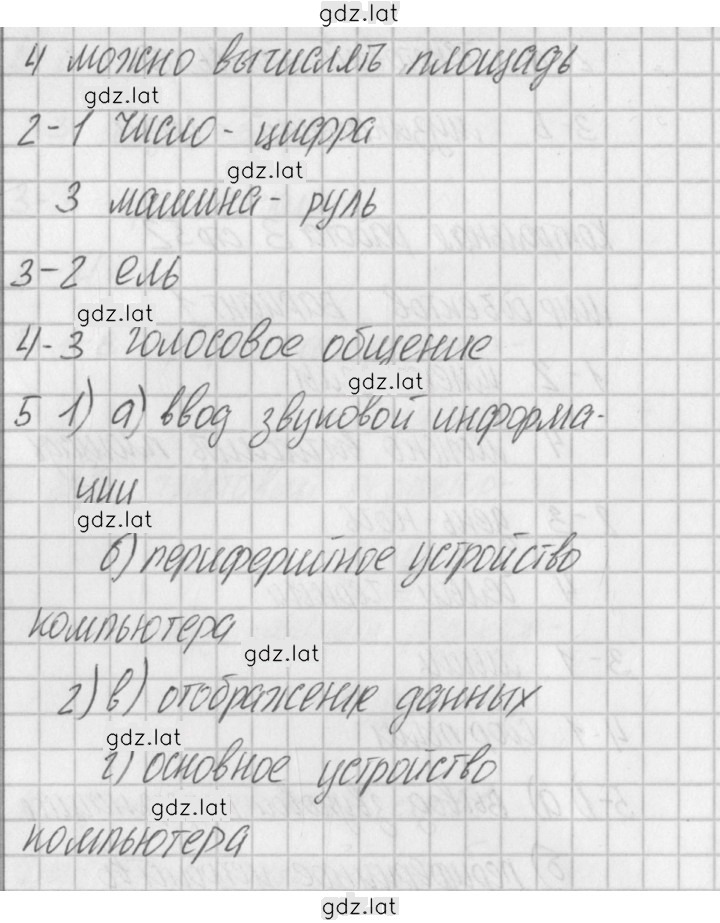 gdz.lat
4 можно вычислять площадь
gdz.lat
2-1 число - цифра
gdz.lat
3 машина - руль
3-2 ель
gdz.lat
4-3 голосовое общение
gdz.lat
5 1) а) ввод звуковой информа-
ции
gdz.lat
б) периферийное устройство
компьютера
gdz.lat
2) в) отображение данных
gdz.lat
г) основное устройство
gdz.lat
компьютера
gdz.lat